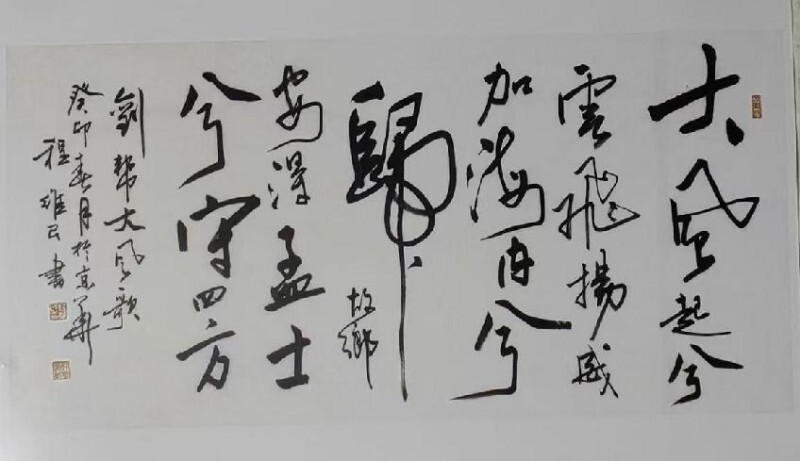 大风起兮
雲飛揚威
加海内兮
歸故鄉
安得孟士
兮守四方
劉邦大风歌
癸卯春月於京華
程維民書